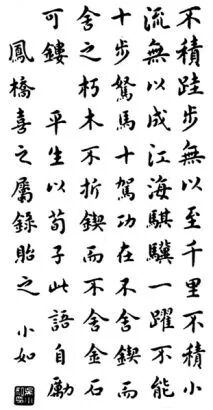 不積跬步無以至千里不積小
流無以成江海騏驥一躍不能
十步駑馬十駕功在不舍鍥而
舍之朽木不折鍥而不舍金石
可鏤　平生以荀子此語自勵
鳳橋喜之屬錄貽之　小如